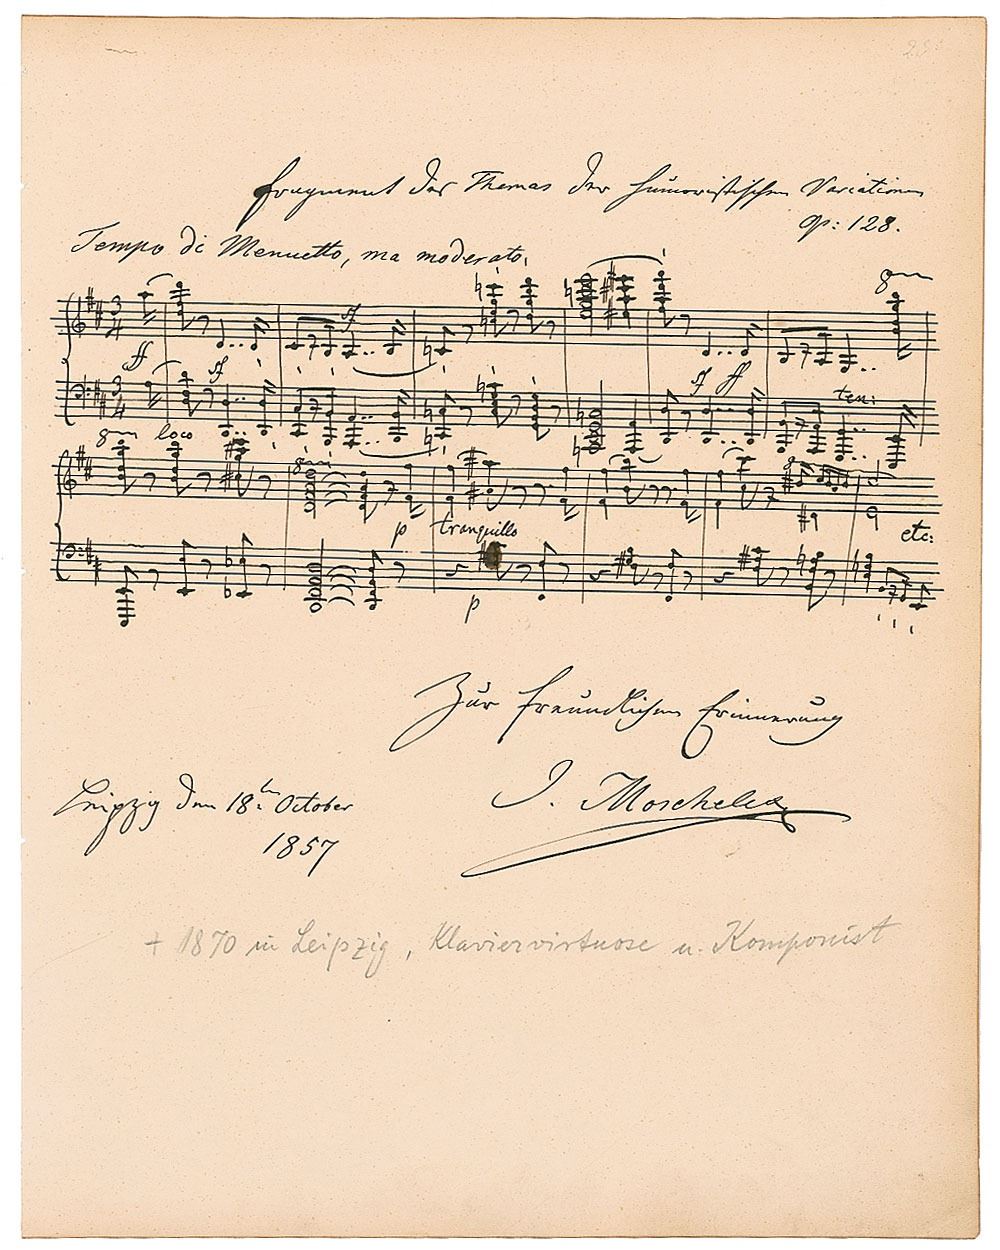 Fragment des Themas der humoristischen Variationen
op: 128.
Tempo di Menuetto, ma moderato.
8va
3/4 sf
ff sf sf ff
3/4 ten:
8va loco
8va
p tranquillo etc:
p
Zur freundlichen Erinnerung
J. Moscheles
Leipzig den 18ten October
1857
† 1870 in Leipzig, Klaviervirtuose u. Komponist